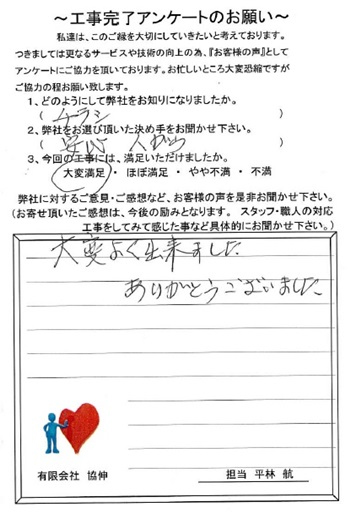 ～工事完了アンケートのお願い～
私達は、このご縁を大切にしていきたいと考えております。
つきましては更なるサービスや技術の向上の為、『お客様の声』として
アンケートにご協力を頂いております。お忙しいところ大変恐縮ですが
ご協力の程お願い致します。
1、どのようにして弊社をお知りになりましたか。
( チラシ )
2、弊社をお選び頂いた決め手をお聞かせ下さい。
( 安心 人がら )
3、今回の工事には、満足いただけましたか。
大変満足 ・ ほぼ満足 ・ やや不満 ・ 不満
弊社に対するご意見・ご感想など、お客様の声を是非お聞かせ下さい。
(お寄せ頂いたご感想は、今後の励みとなります。 スタッフ・職人の対応
工事をしてみて感じた事など具体的にお聞かせ下さい。)
大変よく出来ました
ありがとうございました
有限会社 協伸
担当 平林 航